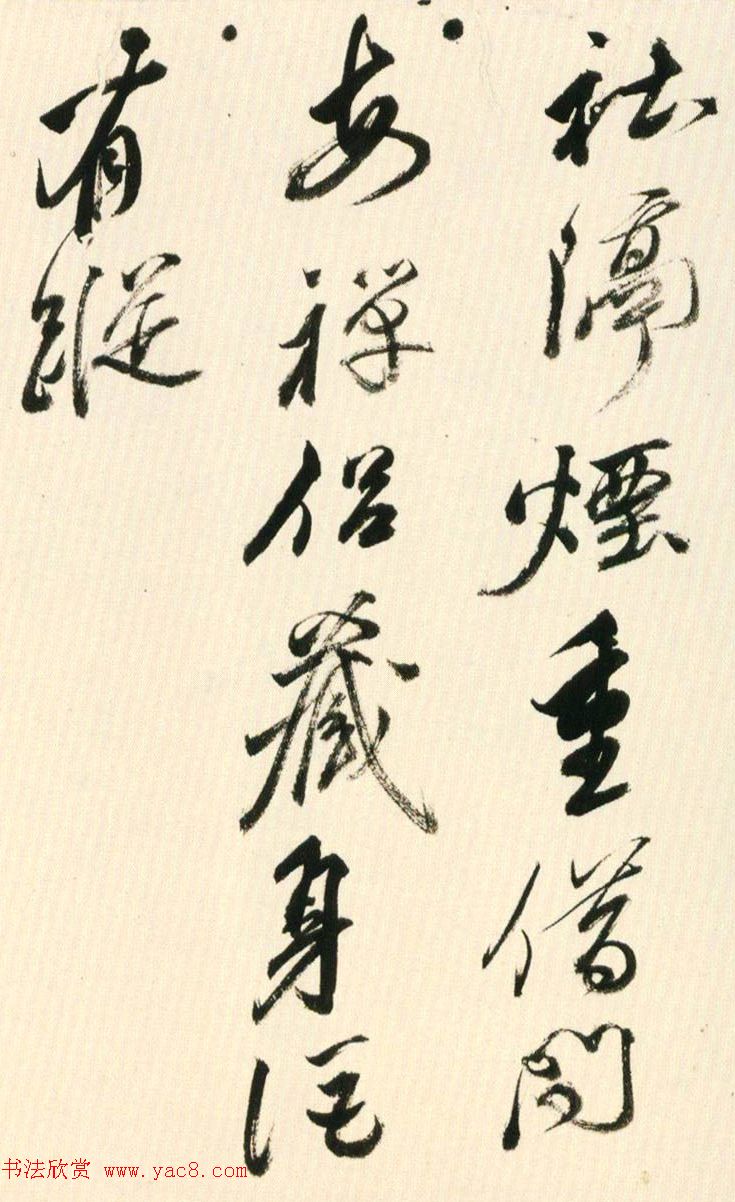 社隔煙重借問
安禪侶藏身詎
有蹤
书法欣赏 www.yac8.com